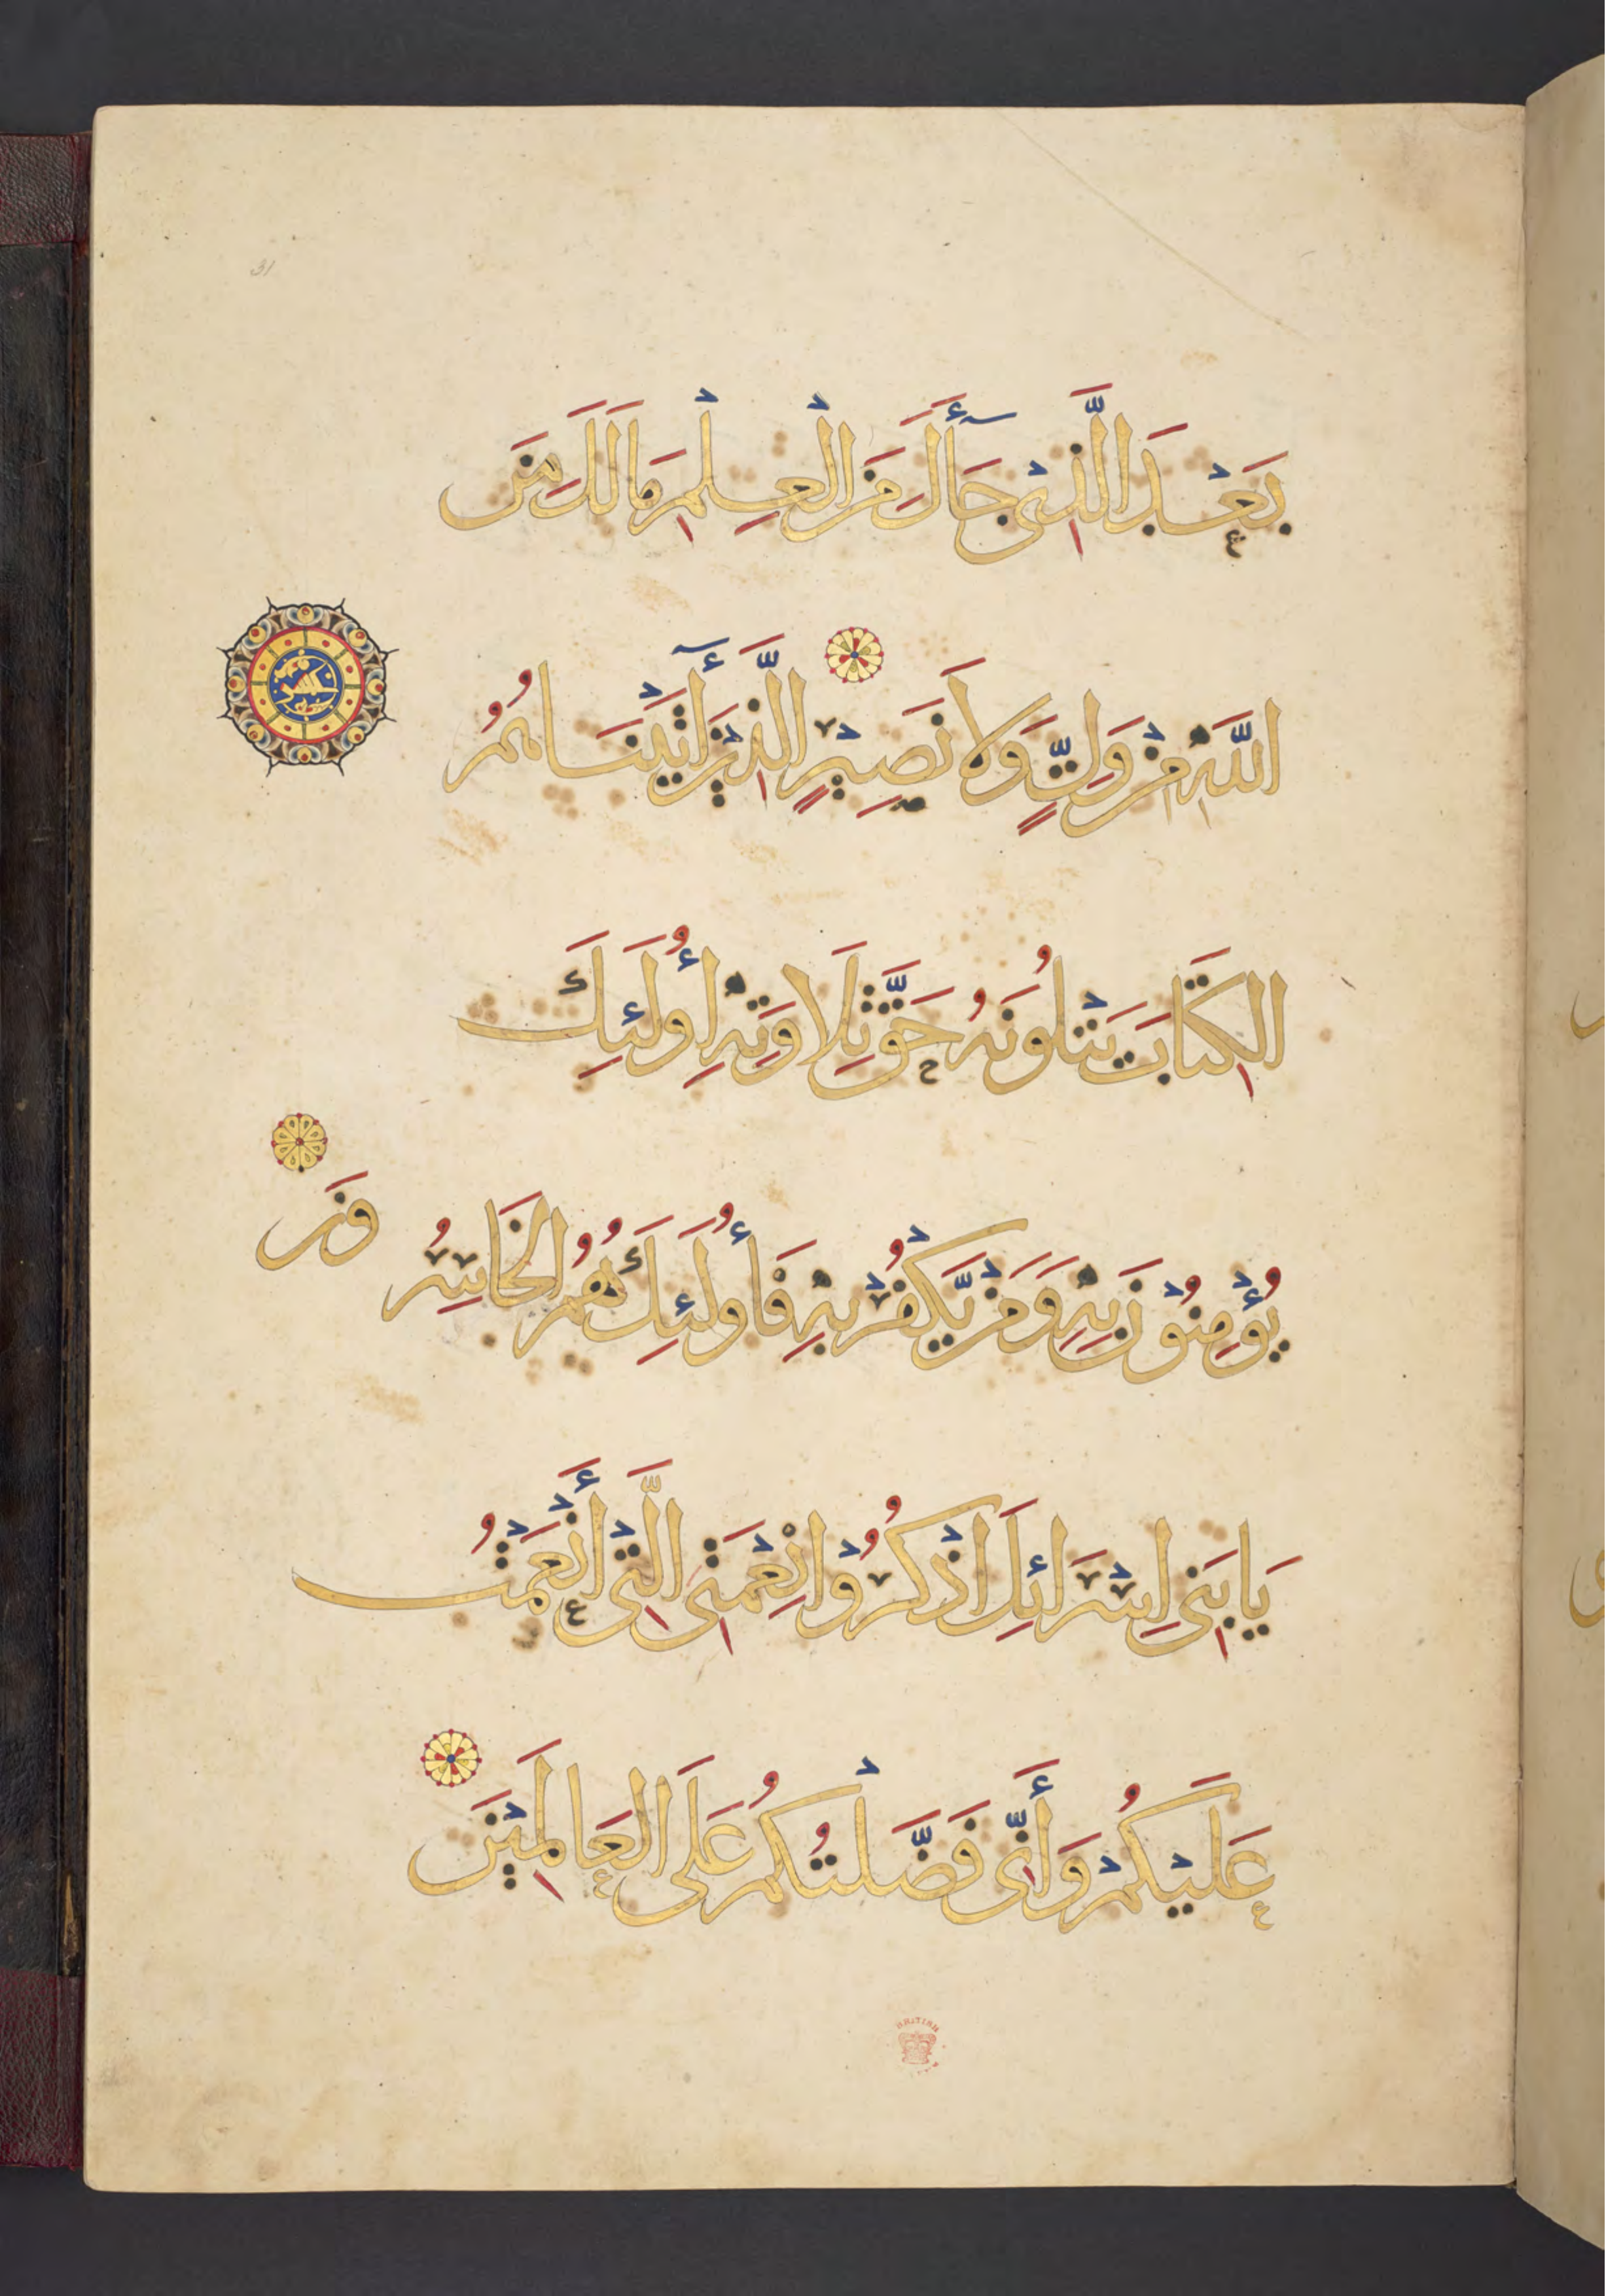 31
بَعْدَ الَّذِيْ جَآءَكَ مِنَ الْعِلْمِ مَا لَكَ مِنَ
اللَّهِ مِنْ وَلِيٍّ وَلَا نَصِيْرٍ الَّذِيْنَ أٓتَيْنَاهُمُ
الكِتَابَ يَتْلُونَهُ حَقَّ تِلَاوَتِهِ أُولَئِكَ
يُؤْمِنُوْنَ بِهِ وَمَنْ يَّكْفُرْ بِهِ فَأُولَئِكَ هُمُ الخَاسِرُ
وْنَ
يَابَنِي إِسْرَائِلَ اذْكُرُوْا نِعْمَتِيَ الَّتِيْ أَنْعَمْتُ
عَلَيْكُمْ وَأَنِّي فَضَّلْتُكُمْ عَلَى العَالَمِيْنَ
BRITISH